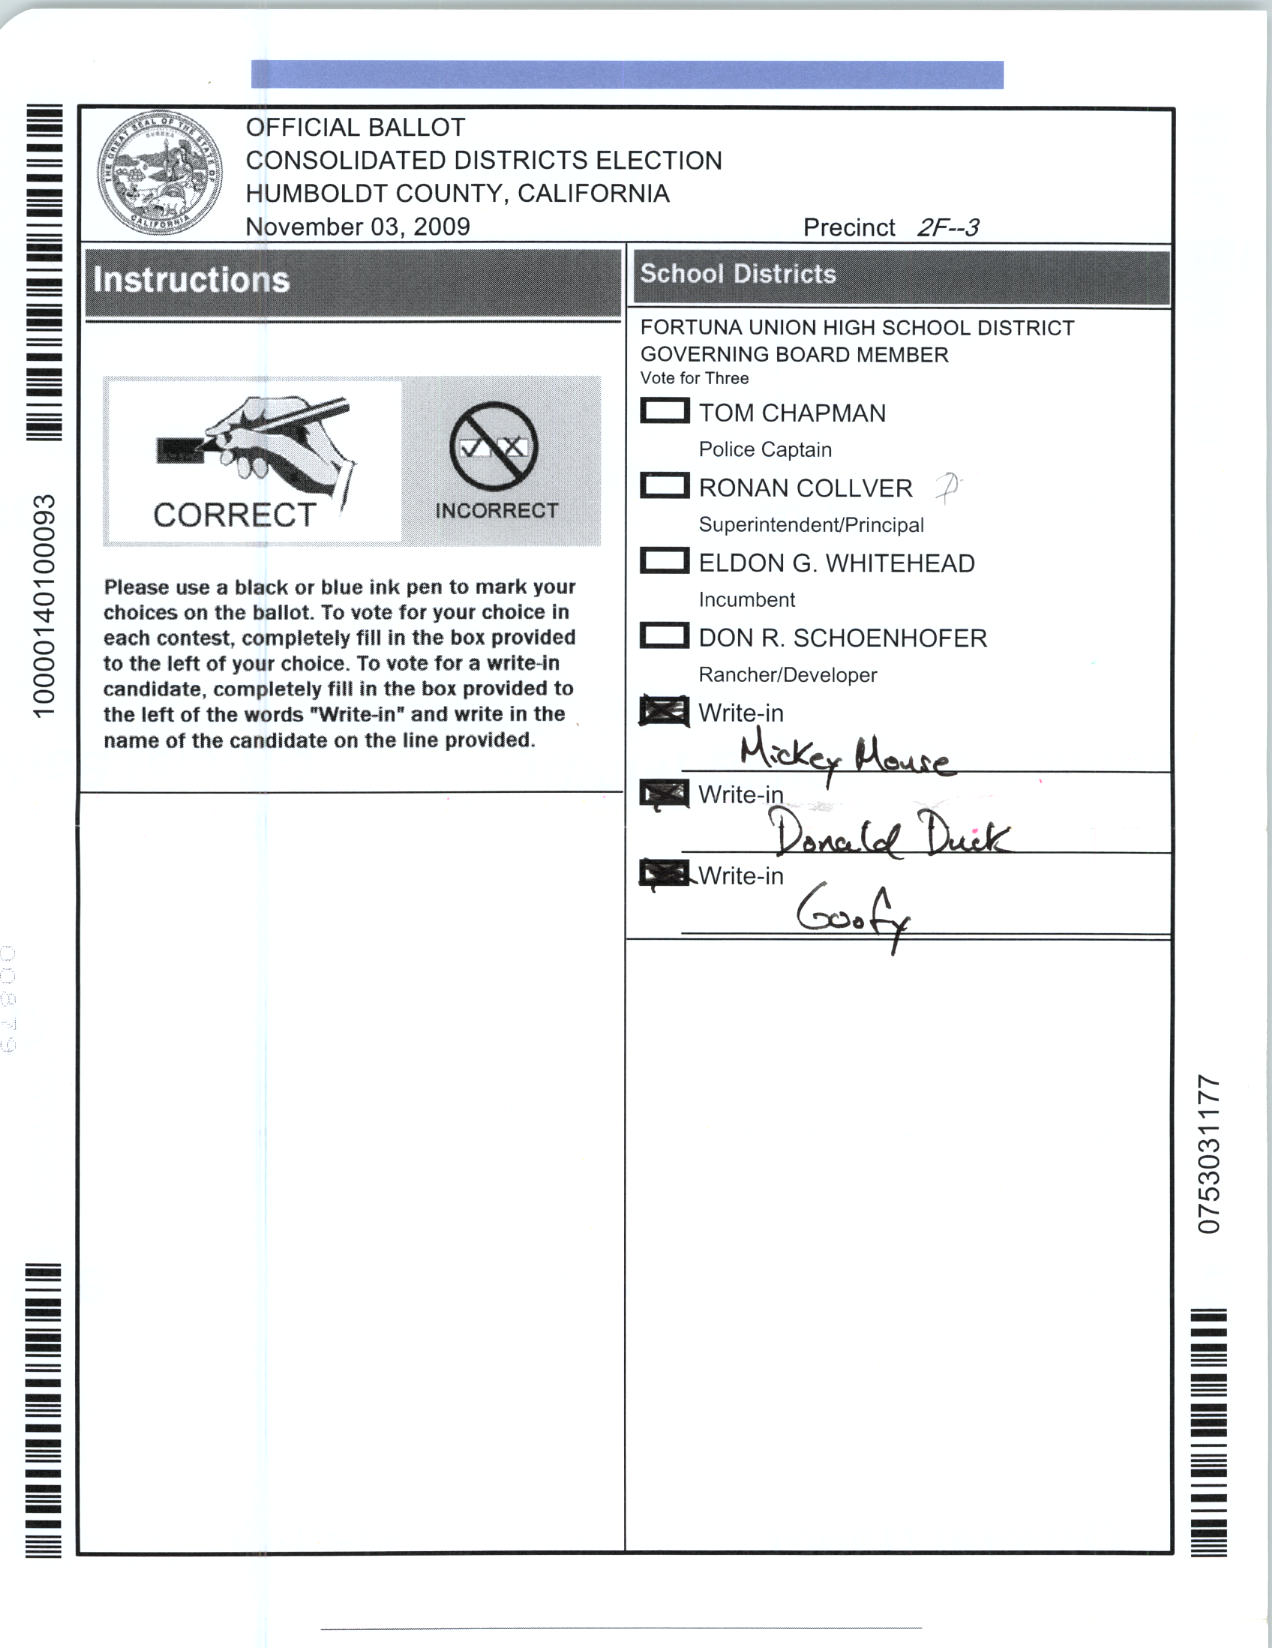 OFFICIAL BALLOT
CONSOLIDATED DISTRICTS ELECTION
HUMBOLDT COUNTY, CALIFORNIA
November 03, 2009
Precinct 2F--3
THE GREAT SEAL OF THE STATE OF CALIFORNIA
EUREKA
Instructions
CORRECT
INCORRECT
Please use a black or blue ink pen to mark your
choices on the ballot. To vote for your choice in
each contest, completely fill in the box provided
to the left of your choice. To vote for a write-in
candidate, completely fill in the box provided to
the left of the words "Write-in" and write in the
name of the candidate on the line provided.
School Districts
FORTUNA UNION HIGH SCHOOL DISTRICT
GOVERNING BOARD MEMBER
Vote for Three
TOM CHAPMAN
Police Captain
RONAN COLLVER
Superintendent/Principal
ELDON G. WHITEHEAD
Incumbent
DON R. SCHOENHOFER
Rancher/Developer
Write-in
Mickey Mouse
Write-in
Donald Duck
Write-in
Goofy
10000140100093
0753031177